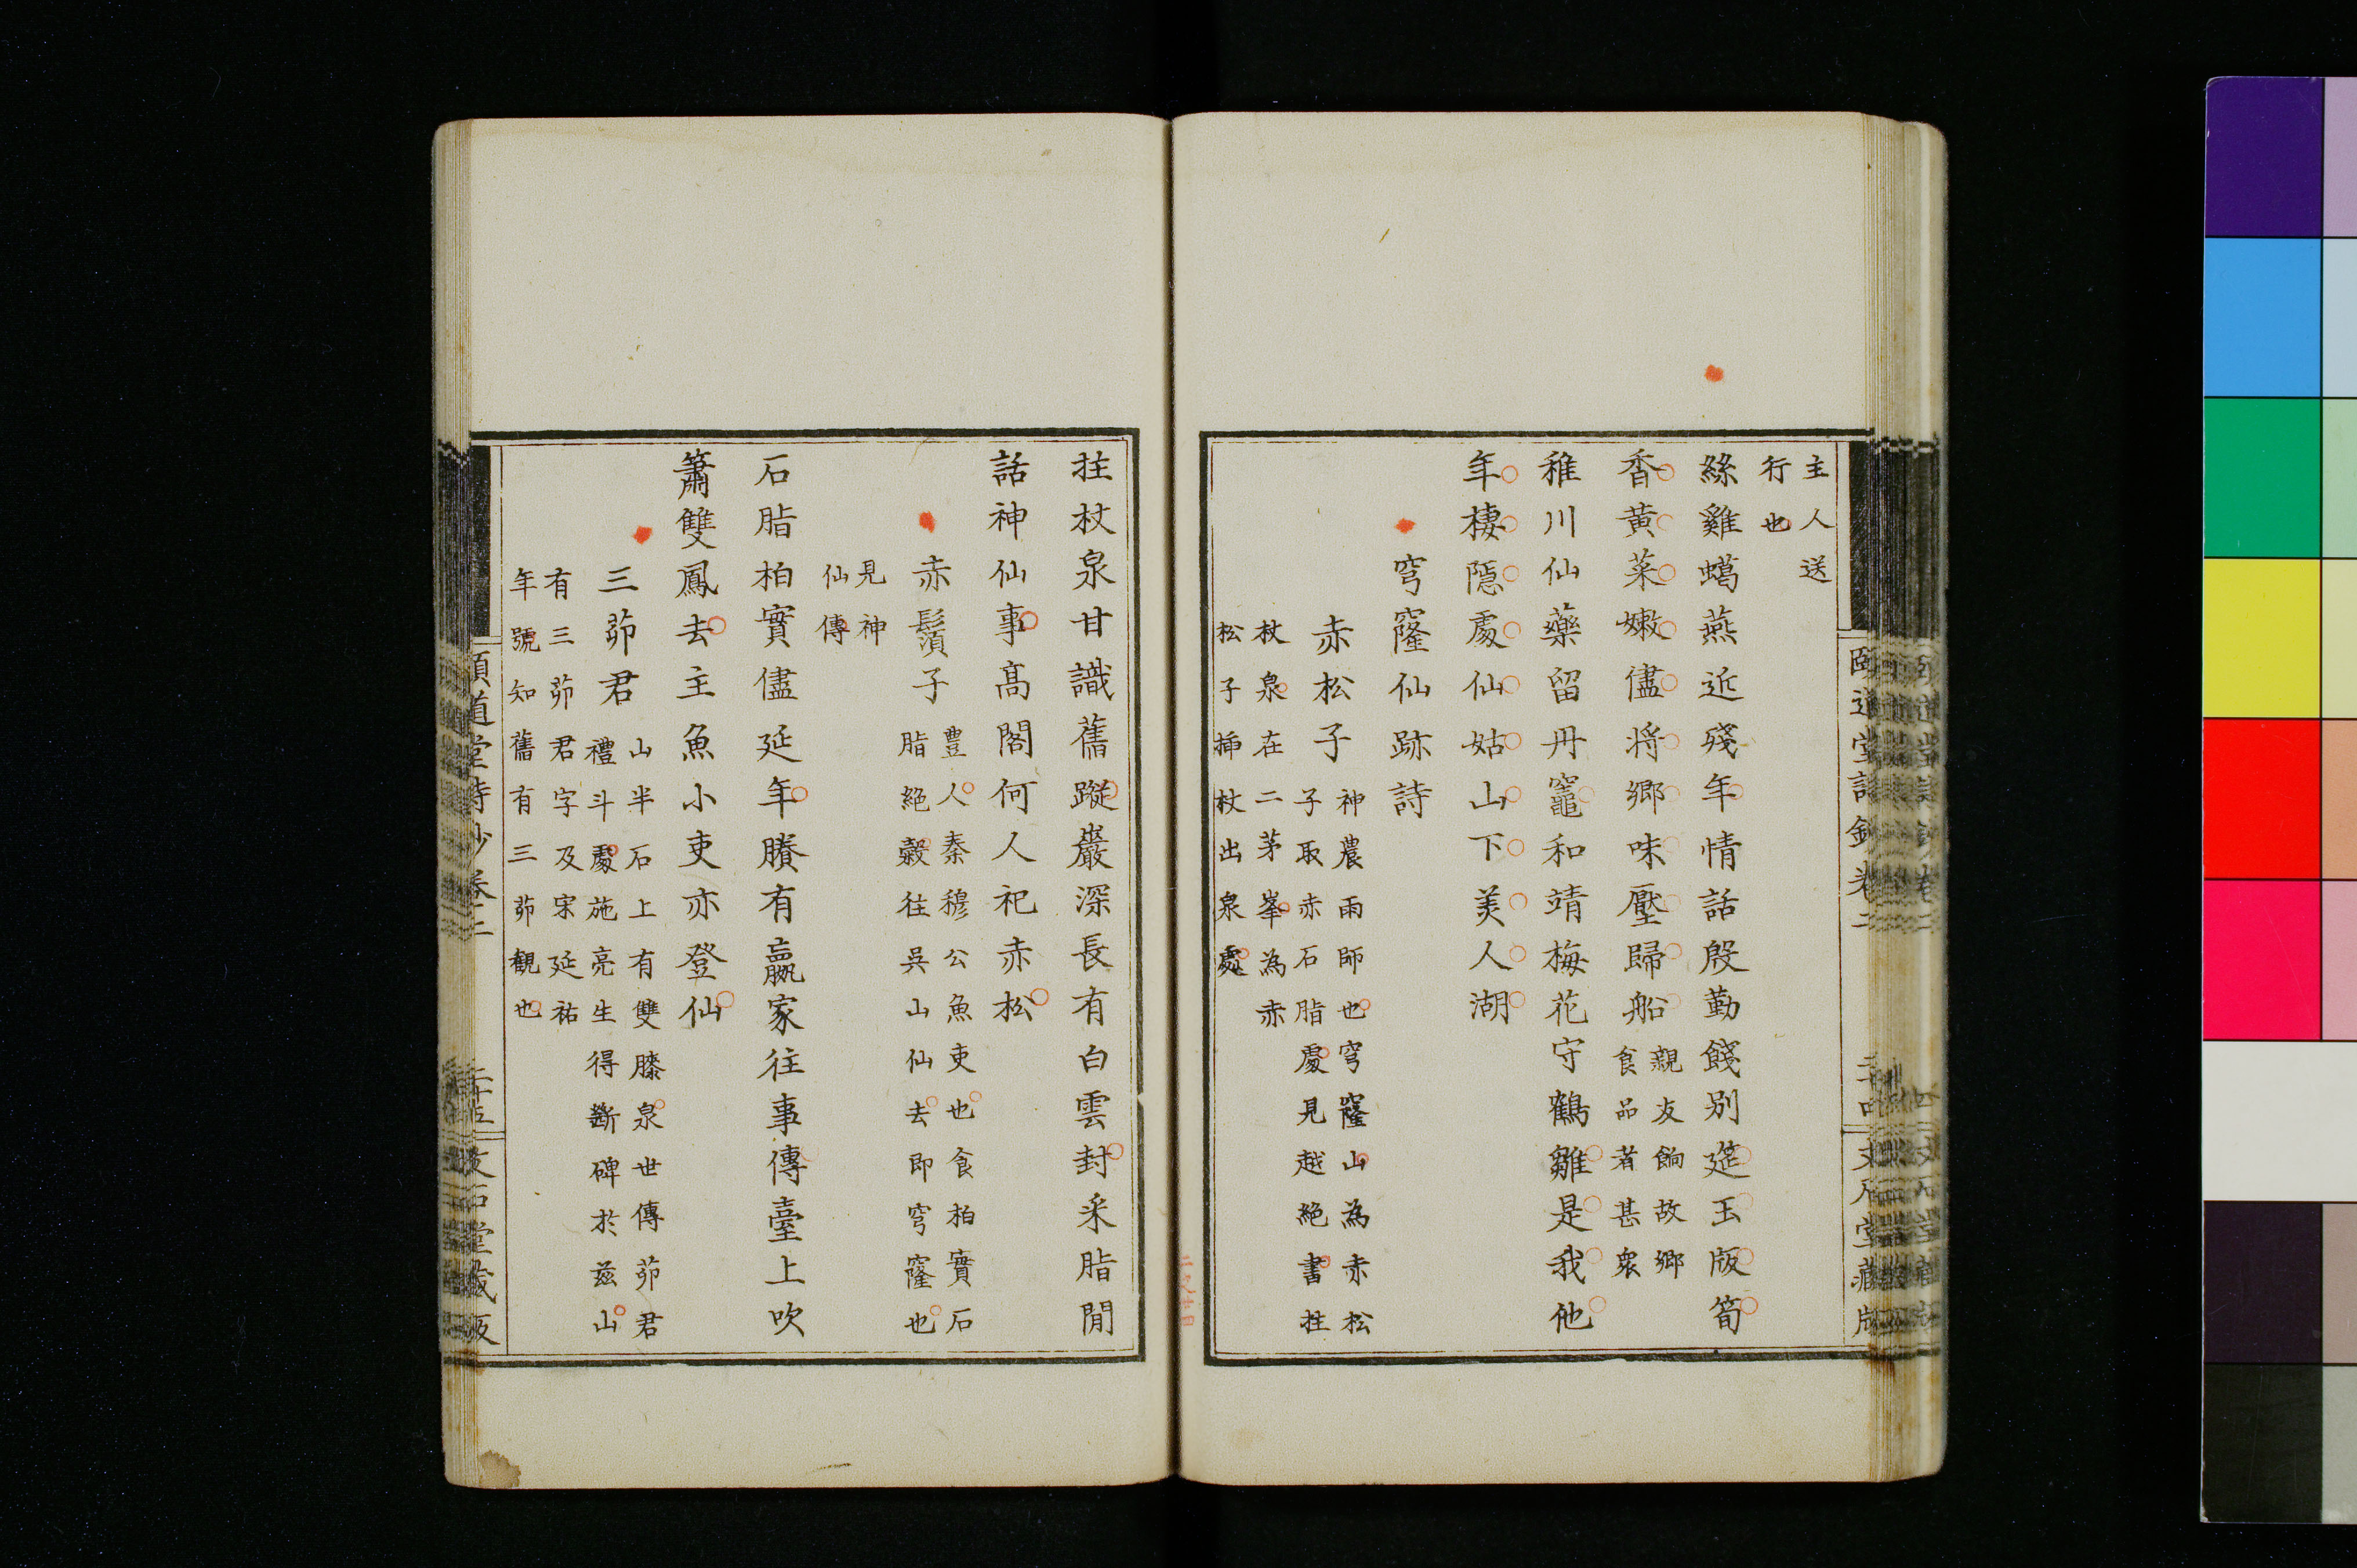 主人送
行也
絲雞蠟燕近殘年情話殷勤餞別筵玉版筍
香黃菜嫩儘將鄉味壓歸船
親友餉故鄉
食品者甚衆
稚川仙藥留丹竈和靖梅花守鶴雛是我他
年棲隱處仙姑山下美人湖
穹窿仙跡詩
赤松子
神農雨師也穹窿山為赤松
子取赤石脂處見越絕書拄
杖泉在二茅峯為赤
松子揷杖出泉處
頤道堂詩鈔卷二
文石堂藏版
拄杖泉甘識舊蹤巖深長有白雲封采脂閒
話神仙事高閣何人祀赤松
赤鬚子
豐人秦穆公魚吏也食柏實石
脂絕穀往吳山仙去即穹窿也
見神
仙傳
石脂柏實儘延年賸有嬴家往事傳臺上吹
簫雙鳳去主魚小吏亦登仙
三茆君
山半石上有雙膝泉世傳茆君
禮斗處施亮生得斷碑於茲山
有三茆君字及宋延祐
年號知舊有三茆觀也
頤道堂詩鈔卷二
二十五
文石堂藏版